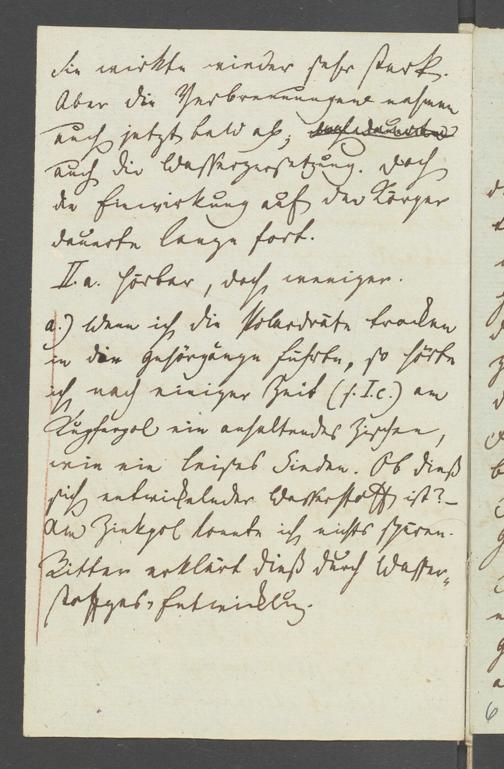 die wirkte wieder sehr stark.
Aber die Verbrennungen nahmen
auch jetzt bald ab;
auch die Wasserzersetzung. Doch
die Einwirkung auf den Körper
dauerte lange fort.
II. a. hörbar, doch weniger.
a.) Wenn ich die Polardräte trocken
in die Gehörgänge führte, so hörte
ich nach einiger Zeit (s. I.c.) am
Kupferpol ein anhaltendes Zischen,
wie ein leises Sieden. Ob dieß
sich entwickelnder Wasserstoff ist? –
Am Zinkpol konnte ich nichts spüren.
Ritter erklärt dieß durch Wasser-
stoffgas-Entwicklung.
6